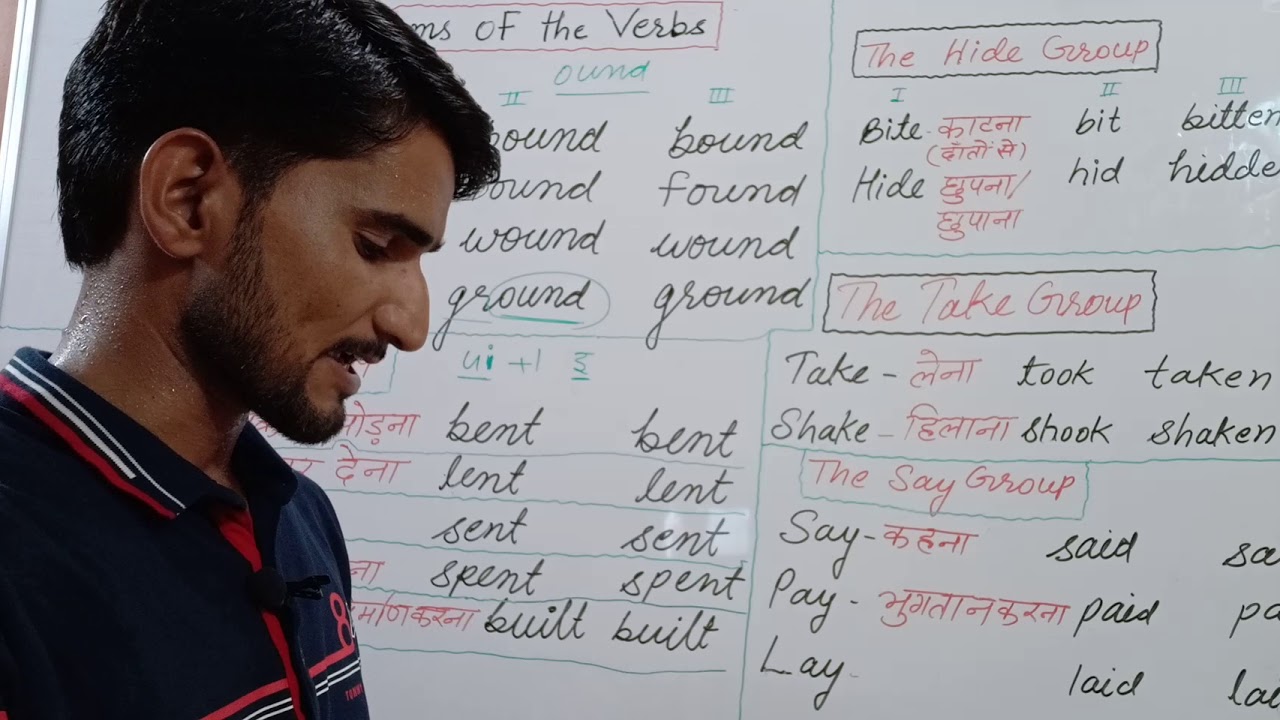 ms of the Verbs
ound
II III
ound bound
ound found
wound wound
ground ground
ui + l इ
bent bent
देना lent lent
sent sent
ना spent spent
करना built built
The Hide Group
I II III
Bite - काटना bit bitten
(दाँतों से)
Hide छुपना/ hid hidde
छुपाना
The Take Group
Take - लेना took taken
Shake - हिलाना shook shaken
The Say Group
Say - कहना said sa
Pay - भुगतान करना paid pa
Lay - laid lai
8